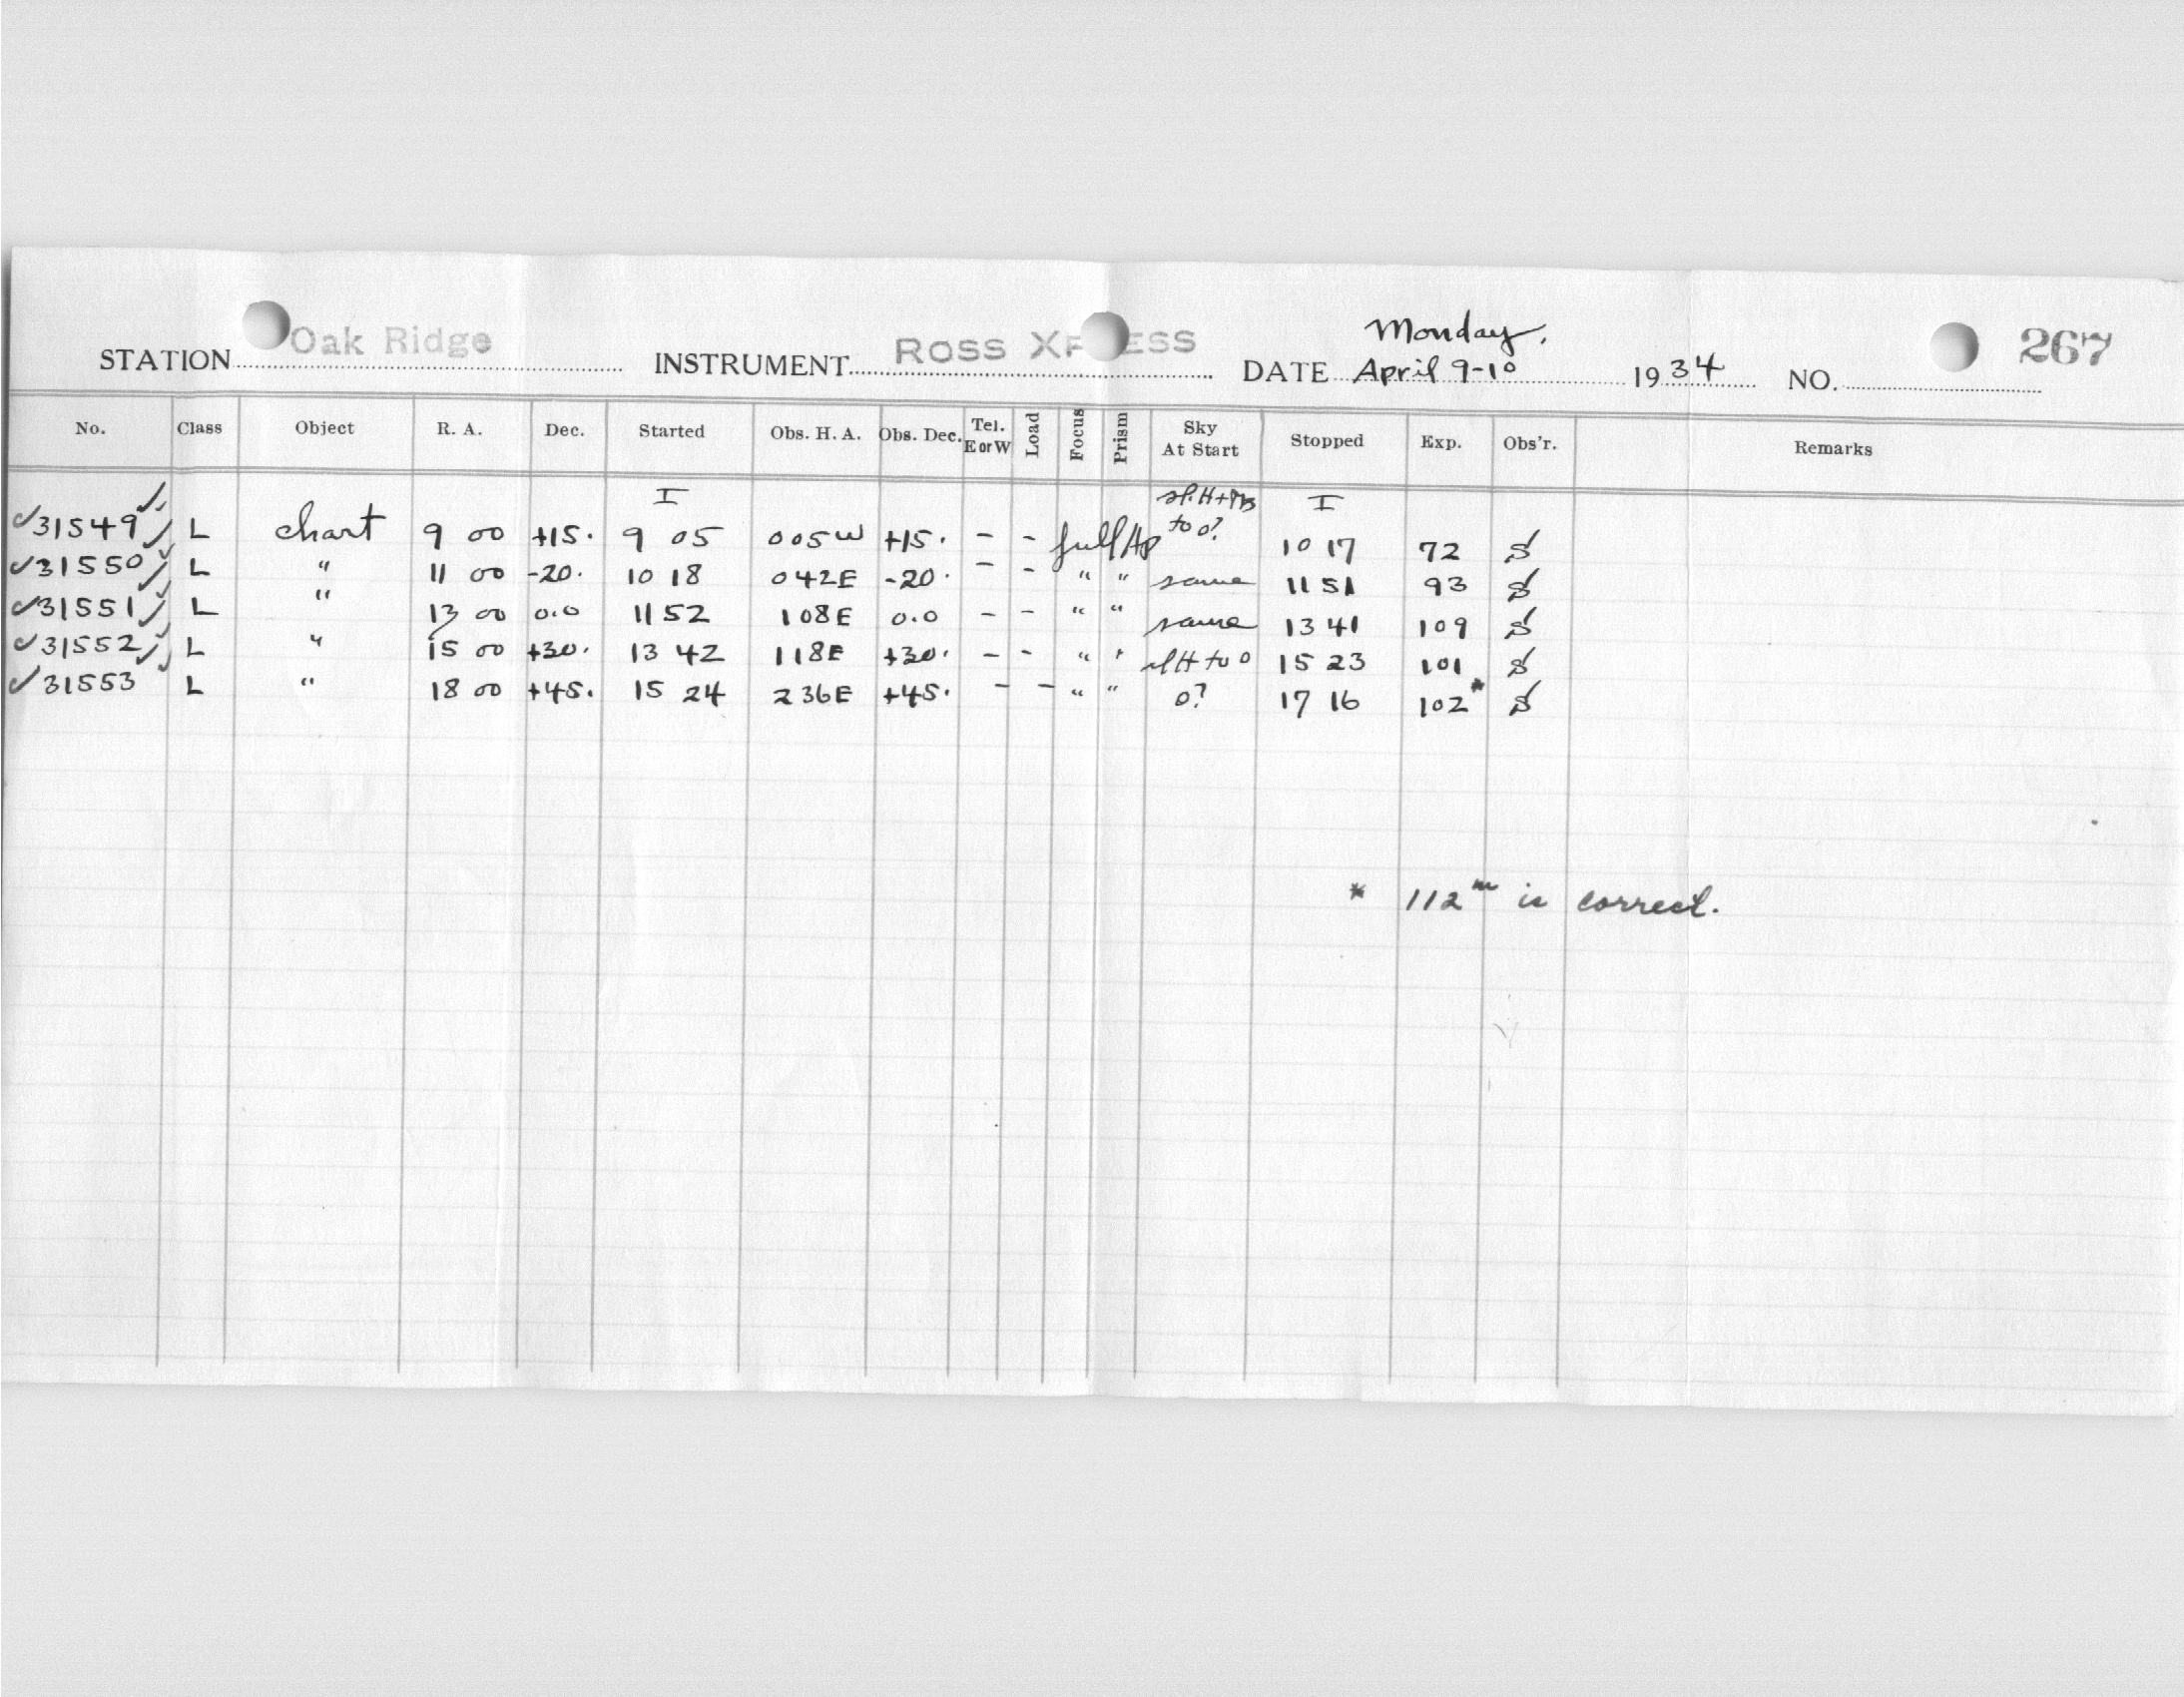 Monday,
STATION Oak Ridge INSTRUMENT ROSS XPRESS DATE April 9-10 1934 NO. 267
No. Class Object R. A. Dec. Started Obs. H. A. Obs. Dec. Tel. E or W Load Focus Prism Sky At Start Stopped Exp. Obs'r. Remarks
I I
31549 L chart 9 00 +15. 9 05 005W +15. - - full Ap to 0? 10 17 72 S
31550 L " 11 00 -20. 10 18 042E -20. - - " " same 11 51 93 S
31551 L " 13 00 0.0 11 52 108E 0.0 - - " " same 13 41 109 S
31552 L " 15 00 +30. 13 42 118E +30. - - " " sl H to 0 15 23 101 S
31553 L " 18 00 +45. 15 24 236E +45. - - " " 0? 17 16 102* S
* 112m is correct.